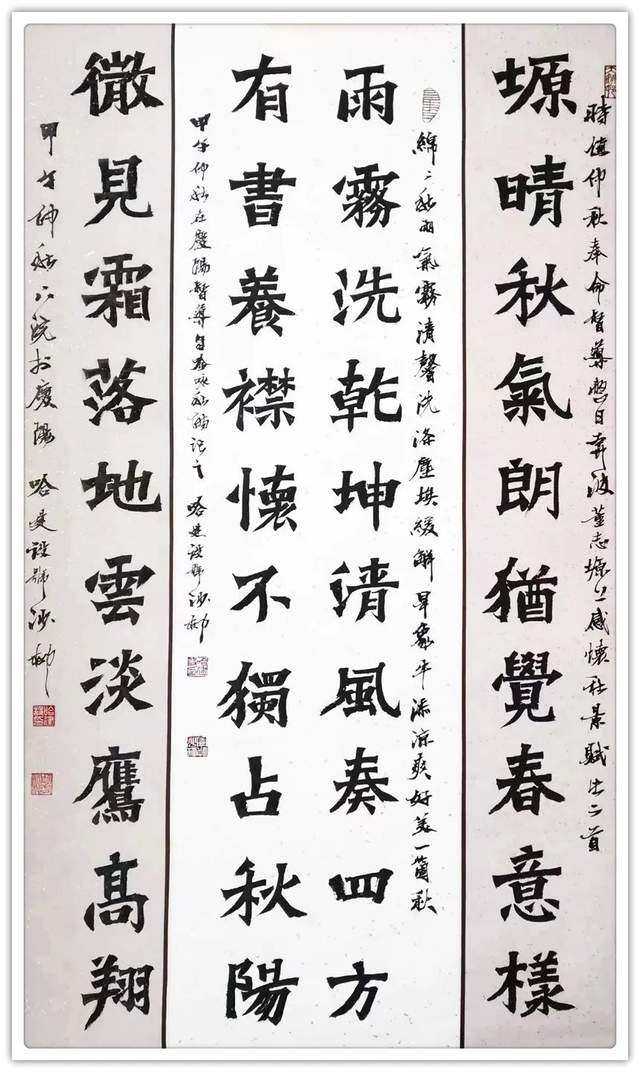 時值仲秋奉命督導 日奔波董志塬上感懷 景賦 二首
塬晴秋氣朗猶覺春意樣
綿〻秋雨氣霧清馨洗滌塵埃緩解旱象平添涼爽好美一箇秋
雨霧洗乾坤清風奏四方
有書養襟懷不獨占秋陽
甲午仲秋在慶陽督導 詠秋 記之 哈建設號沙柳
微見霜落地雲淡鷹髙翔
甲午仲秋下浣於慶陽 哈建設號沙柳